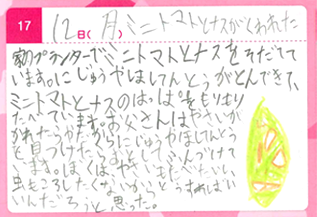 17
12日(月)ミニトマトとナスがくわれた
家のプランターでミニトマトとナスをそだてて
います。にじゅうやほしてんとうがとんできて、
ミニトマトとナスのはっぱをもりもり
たべています。お父さんはやさいが
かれたらだからにじゅうやほしてんとう
を見つけたら
ます。ぼくはやさいもたべたいし
虫もころしたくないからどうすればい
いんだろうと思った。